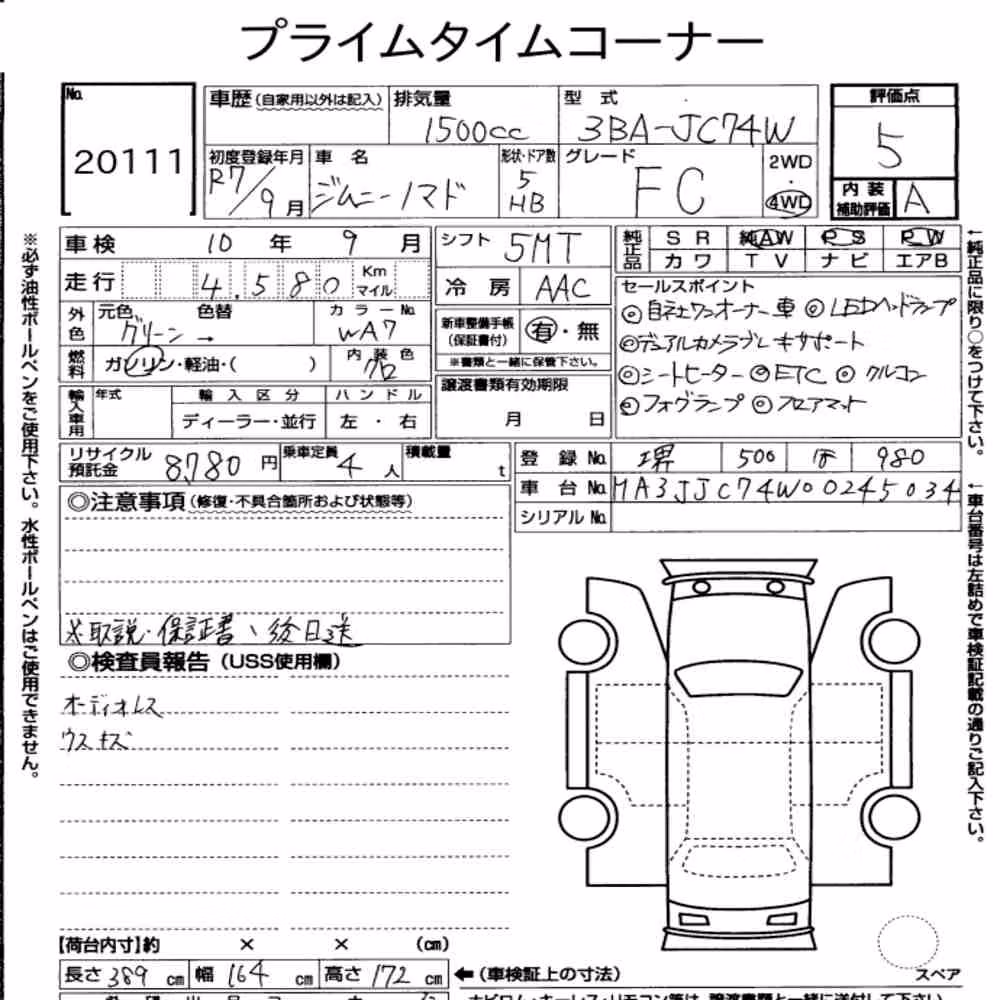 プライムタイムコーナー
No. 20111
車歴 (自家用以外は記入)
排気量 1500cc
型式 3BA-JC74W
評価点 5
内装補助評価 A
初度登録年月 R7/9月
車名 ジムニーノマド
形状・ドア数 5 HB
グレード FC
2WD・4WD
車検 10年 9月
シフト 5MT
純正品 SR 純AW PS PW
カワ TV ナビ エアB
走行 4,580 Km マイル
冷房 AAC
セールスポイント
◎自社ワンオーナー車 ◎LEDヘッドランプ
◎デュアルカメラブレーキサポート
◎シートヒーター ◎ETC ◎クルコン
◎フォグランプ ◎フロアマット
外色 元色 グリーン → 色替
カラーNo. WA7
新車整備手帳 (保証書付) 有・無
※書類と一緒に保管下さい。
燃料 ガソリン・軽油・( )
内装色 クロ
譲渡書類有効期限
月 日
輸入車用 年式
輸入区分 ディーラー・並行
ハンドル 左・右
リサイクル預託金 8,780円
乗車定員 4人
積載量 t
登録No. 堺 500 980
車台No. MA3JJC74W00245034
シリアルNo.
◎注意事項 (修復・不具合箇所および状態等)
※取説・保証書、後日送
◎検査員報告 (USS使用欄)
オーディオレス
ウスキズ
【荷台内寸】約 × × (cm)
長さ 389 cm 幅 164 cm 高さ 172 cm
←(車検証上の寸法)
スペア
※必ず油性ボールペンをご使用下さい。水性ボールペンはご使用できません。
←純正品に限り○をつけて下さい。
←車台番号は左詰めで車検証記載の通りご記入下さい。